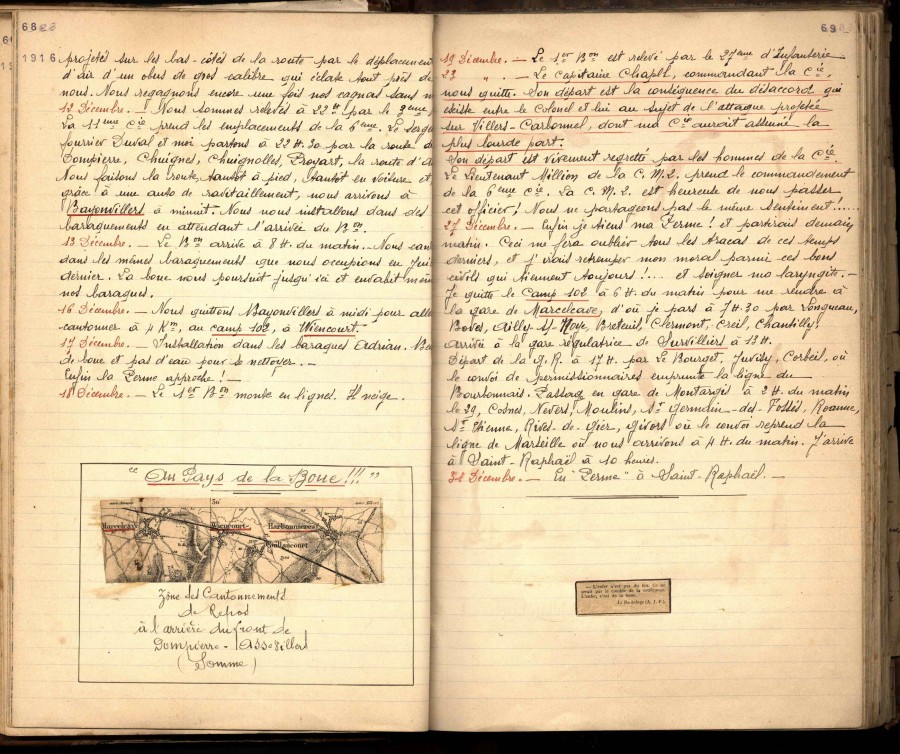 68
1916 projetés sur les bas-côtés de la route par le déplacement
d'air d'un obus de gros calibre qui éclate tout près de
nous. Nous regagnons encore une fois nos cagnas dans
12 Décembre. — Nous sommes relevés à 22H par le 2ème,
La 11ème Cie prend les emplacements de la 6ème. Le Serge
fourrier Duval et moi partons à 22 H. 30 par la route de
Dompierre, Chuignes, Chuignolles, Proyart, la route d'A
Nous faisons la route, tantôt à pied, tantôt en voiture et,
grâce à une auto de ravitaillement, nous arrivons à
Bayonvillers à minuit. Nous nous installons dans des
baraquements en attendant l'arrivée du Bon.
13 Décembre. — Le Bon arrive à 8 H. du matin. Nous
dans les mêmes baraquements que nous occupions en Juin
dernier. La boue nous poursuit jusqu'ici et envahit même
nos baraques.
16 Décembre. — Nous quittons Bayonvillers à midi pour aller
cantonner à 4 Km, au camp 102, à Wiencourt.
17 Décembre. — Installation dans les baraques Adrian.
de boue et pas d'eau pour se nettoyer. —
Enfin la Perme approche ! —
18 Décembre. — Le 1er Bon monte en lignes. Il neige.
" Au Pays de la Boue !!! "
Marcelcave
Wiencourt
Harbonnières
Guillaucourt
Zône des Cantonnements
de Repos
à l'arrière du front de
Dompierre - Assevillers
(Somme)
69
19 Décembre. — Le 1er Bon est relevé par le 27ème d'Infanterie
23 " . — Le Capitaine Chaple, commandant la Cie,
nous quitte. Son départ est la conséquence du désaccord qui
existe entre le Colonel et lui au sujet de l'attaque projetée
sur Villers-Carbonnel, dont ma Cie aurait assumé la
plus lourde part.
Son départ est vivement regretté par les hommes de la Cie.
Le Lieutenant Million de la C.M.2. prend le commandement
de la 6ème Cie. La C.M.2. est heureuse de nous passer
cet officier ! Nous ne partageons pas le même sentiment !....
27 Décembre. — Enfin je tiens ma Perme ! et partirais demain
matin. Ceci me fera oublier tous les tracas de ces temps
derniers, et j'vais retremper mon moral parmi ces bons
civils qui tiennent toujours !... et soigner ma laryngite. —
Je quitte le Camp 102 à 6 H. du matin pour me rendre à
la gare de Marcelcave, d'où je pars à 7 H. 30 par Longueau,
Boves, Ailly s/- Noye, Breteuil, Clermont, Creil, Chantilly.
Arrivée à la gare régulatrice de Survilliers à 13 H.
Départ de la G.R. à 17 H. par Le Bourget, Juvisy, Corbeil, où
le convoi de permissionnaires emprunte la ligne du
Bourbonnais. Passage en gare de Montargis à 2 H. du matin
le 29, Cosnes, Nevers, Moulins, St Germain-des-Fossés, Roanne,
St Etienne, Rives-de-Gier, Givors où le convoi reprend la
ligne de Marseille où nous arrivons à 4 H. du matin. J'arrive
à Saint-Raphaël à 10 heures.
31 Décembre. — En "Perme" à Saint-Raphaël. —
— L'enfer n'est pas du feu. Ce ne
serait pas le comble de la souffrance.
L'enfer, c'est de la boue.